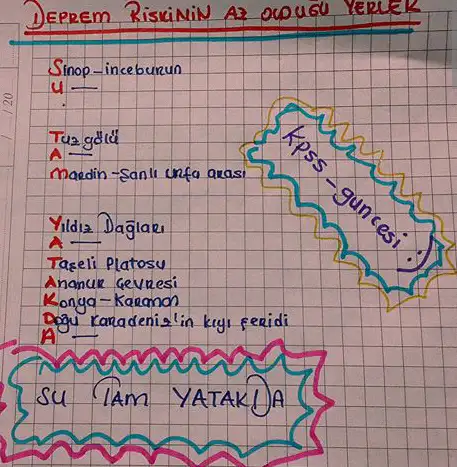 DEPREM RİSKİNİN AZ OLDUĞU YERLER
Sinop-inceburun
U —
Tuz gölü
A —
Mardin-Şanlı urfa arası
Yıldız Dağları
A —
Taşeli Platosu
Anamur Çevresi
Konya-Karaman
Doğu Karadeniz'in kıyı şeridi
A —
kpss-guncesi :)
SU TAM YATAKDA
/ / 20